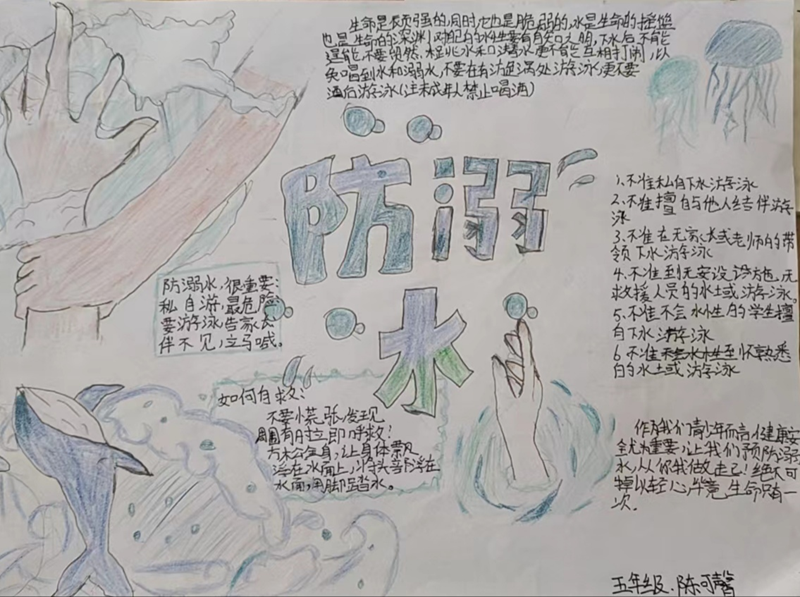 生命是顽强的,同时它也是脆弱的,水是生命的摇篮
也是生命的深渊,对自己的水性要有自知之明,下水后不能
逞能,不要贸然,
免喝到水和溺水,不要在有漩涡处游泳,更不要
酒后游泳(注未成年人禁止喝酒)
防溺
水
防溺水,很重要;
私自游,最危险
要游泳,告家长
伴不见,立马喊。
1、不准私自下水游泳
2、不准擅自与他人结伴游
泳
3、不准在无家长或老师的带
领下水游泳
4、不准到无安设施,无
救援人员的水土或游泳。
5、不准不会水性的学生擅
自下水游泳
6、不准
的水土或游泳
如何自救:
不要慌张,发现
周围有时立即呼救;
放松全身,让身体飘
浮在水面上,将头部浮在
水面,用脚踏水。
作为我们青少年而言,健康安
全尤为重要,让我们预防溺
水,从你我做走己!绝不可
掉以轻心,毕竟,生命只有一
次.
五年级.陈可馨